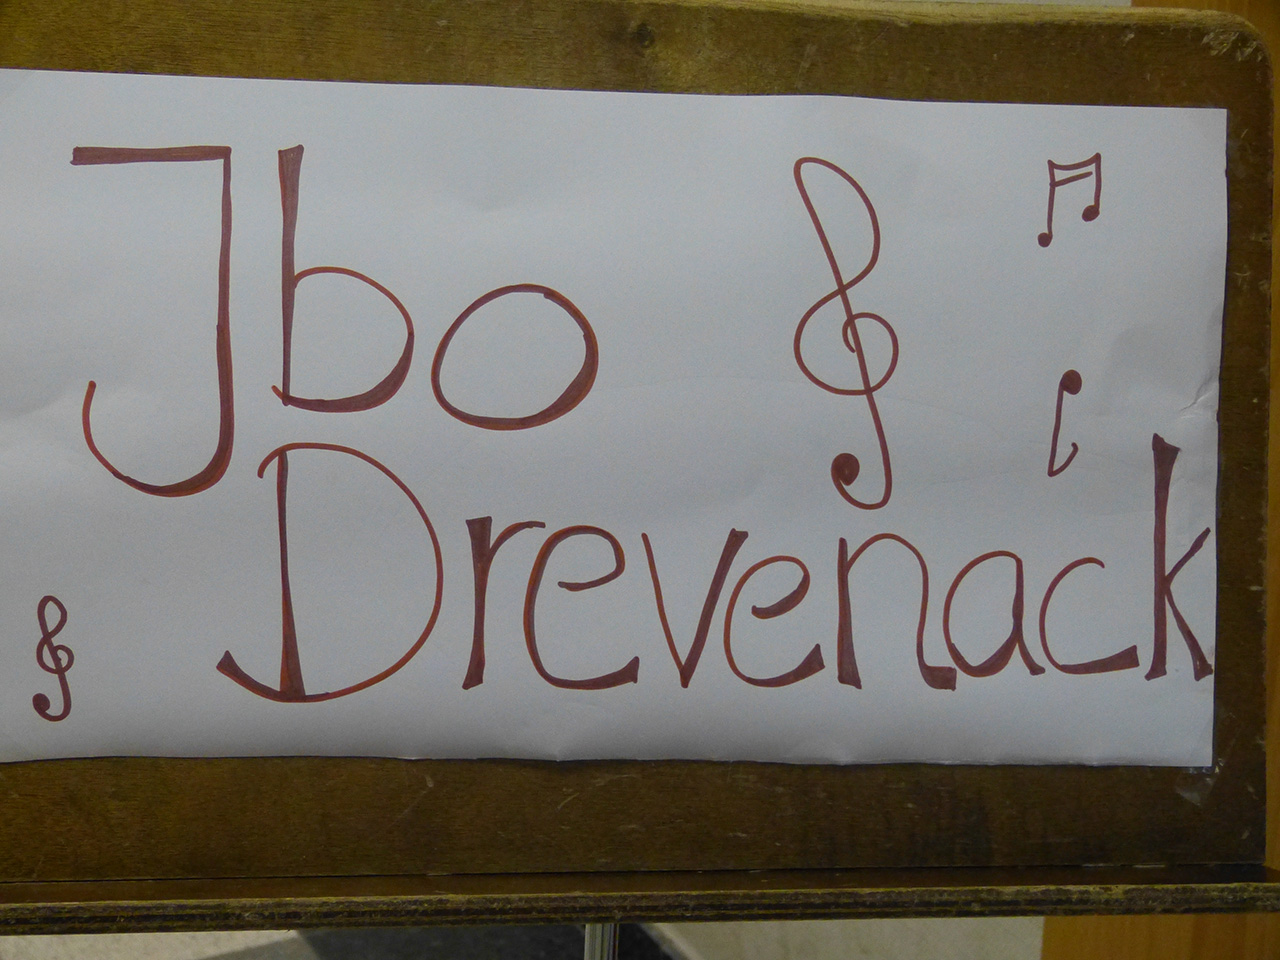 Jbo
Drevenack